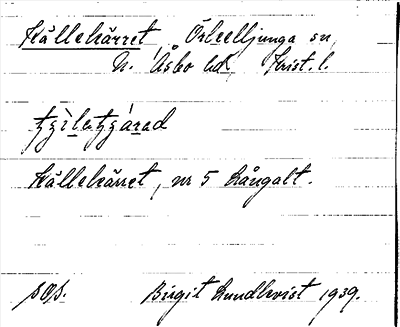 Källekärret Örkelljunga sn,
N. Åsbo hd, Krist. l.
Källekärret, nr 5 Långalt.
SOS. Birgit Lundkvist 1939.